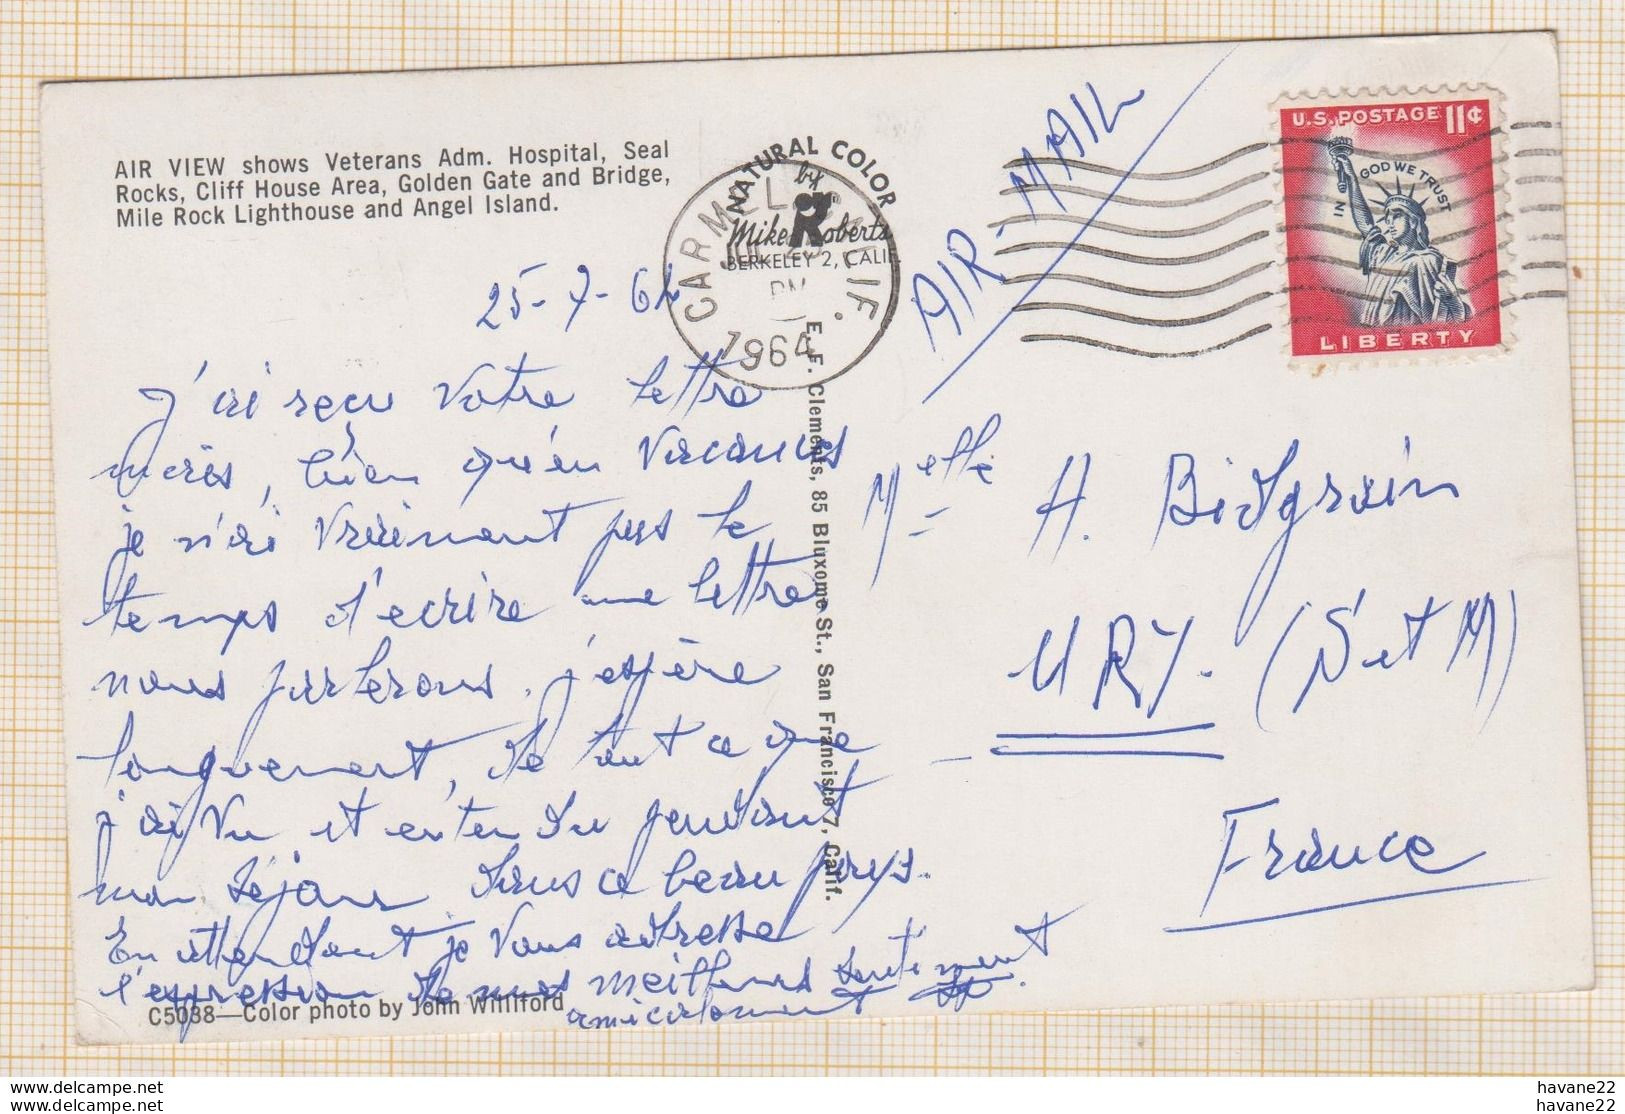 AIR VIEW shows Veterans Adm. Hospital, Seal
Rocks, Cliff House Area, Golden Gate and Bridge,
Mile Rock Lighthouse and Angel Island.
NATURAL COLOR
by
Mike Roberts
BERKELEY 2, CALIF.
CARMEL, CALIF.
PM
1964
AIR-MAIL
U.S. POSTAGE 11¢
IN GOD WE TRUST
LIBERTY
25-7-64
J'ai reçu votre lettre
mais, bien qu'en vacances
je n'ai vraiment pas le
temps d'ecrire une lettre
nous parlerons, j'espère
longuement, de tout ce que
j'ai vu et entendu pendant
mon séjour dans ce beau pays.
En attendant je vous adresse
l'expression de mes meilleurs sentiment
amicalement
E. F. Clements, 85 Bluxome St., San Francisco 7, Calif.
Melle A. Bidgrain
URY. (S et M)
France
C5038—Color photo by John Williford
delcampe.net
delcampe.net
havane22
havane22